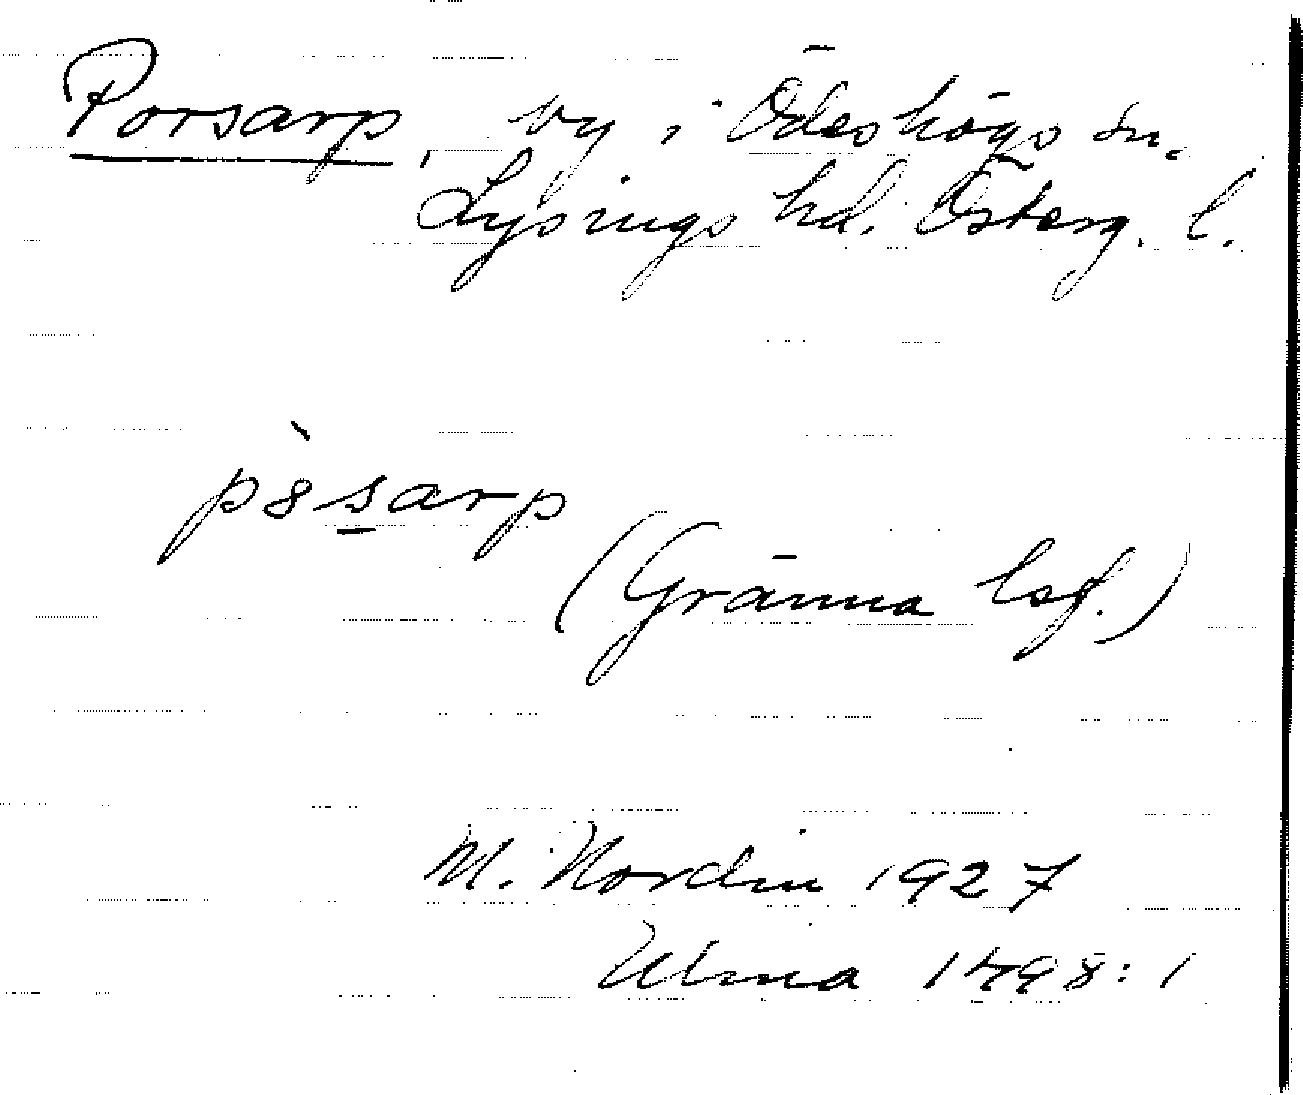 Porsarp, by i Ödeshögs sn.
Lysings hd. Österg. l.
pòs̱arp
(Gränna lsf.)
M. Nordin 1927
Ulma 1498:1